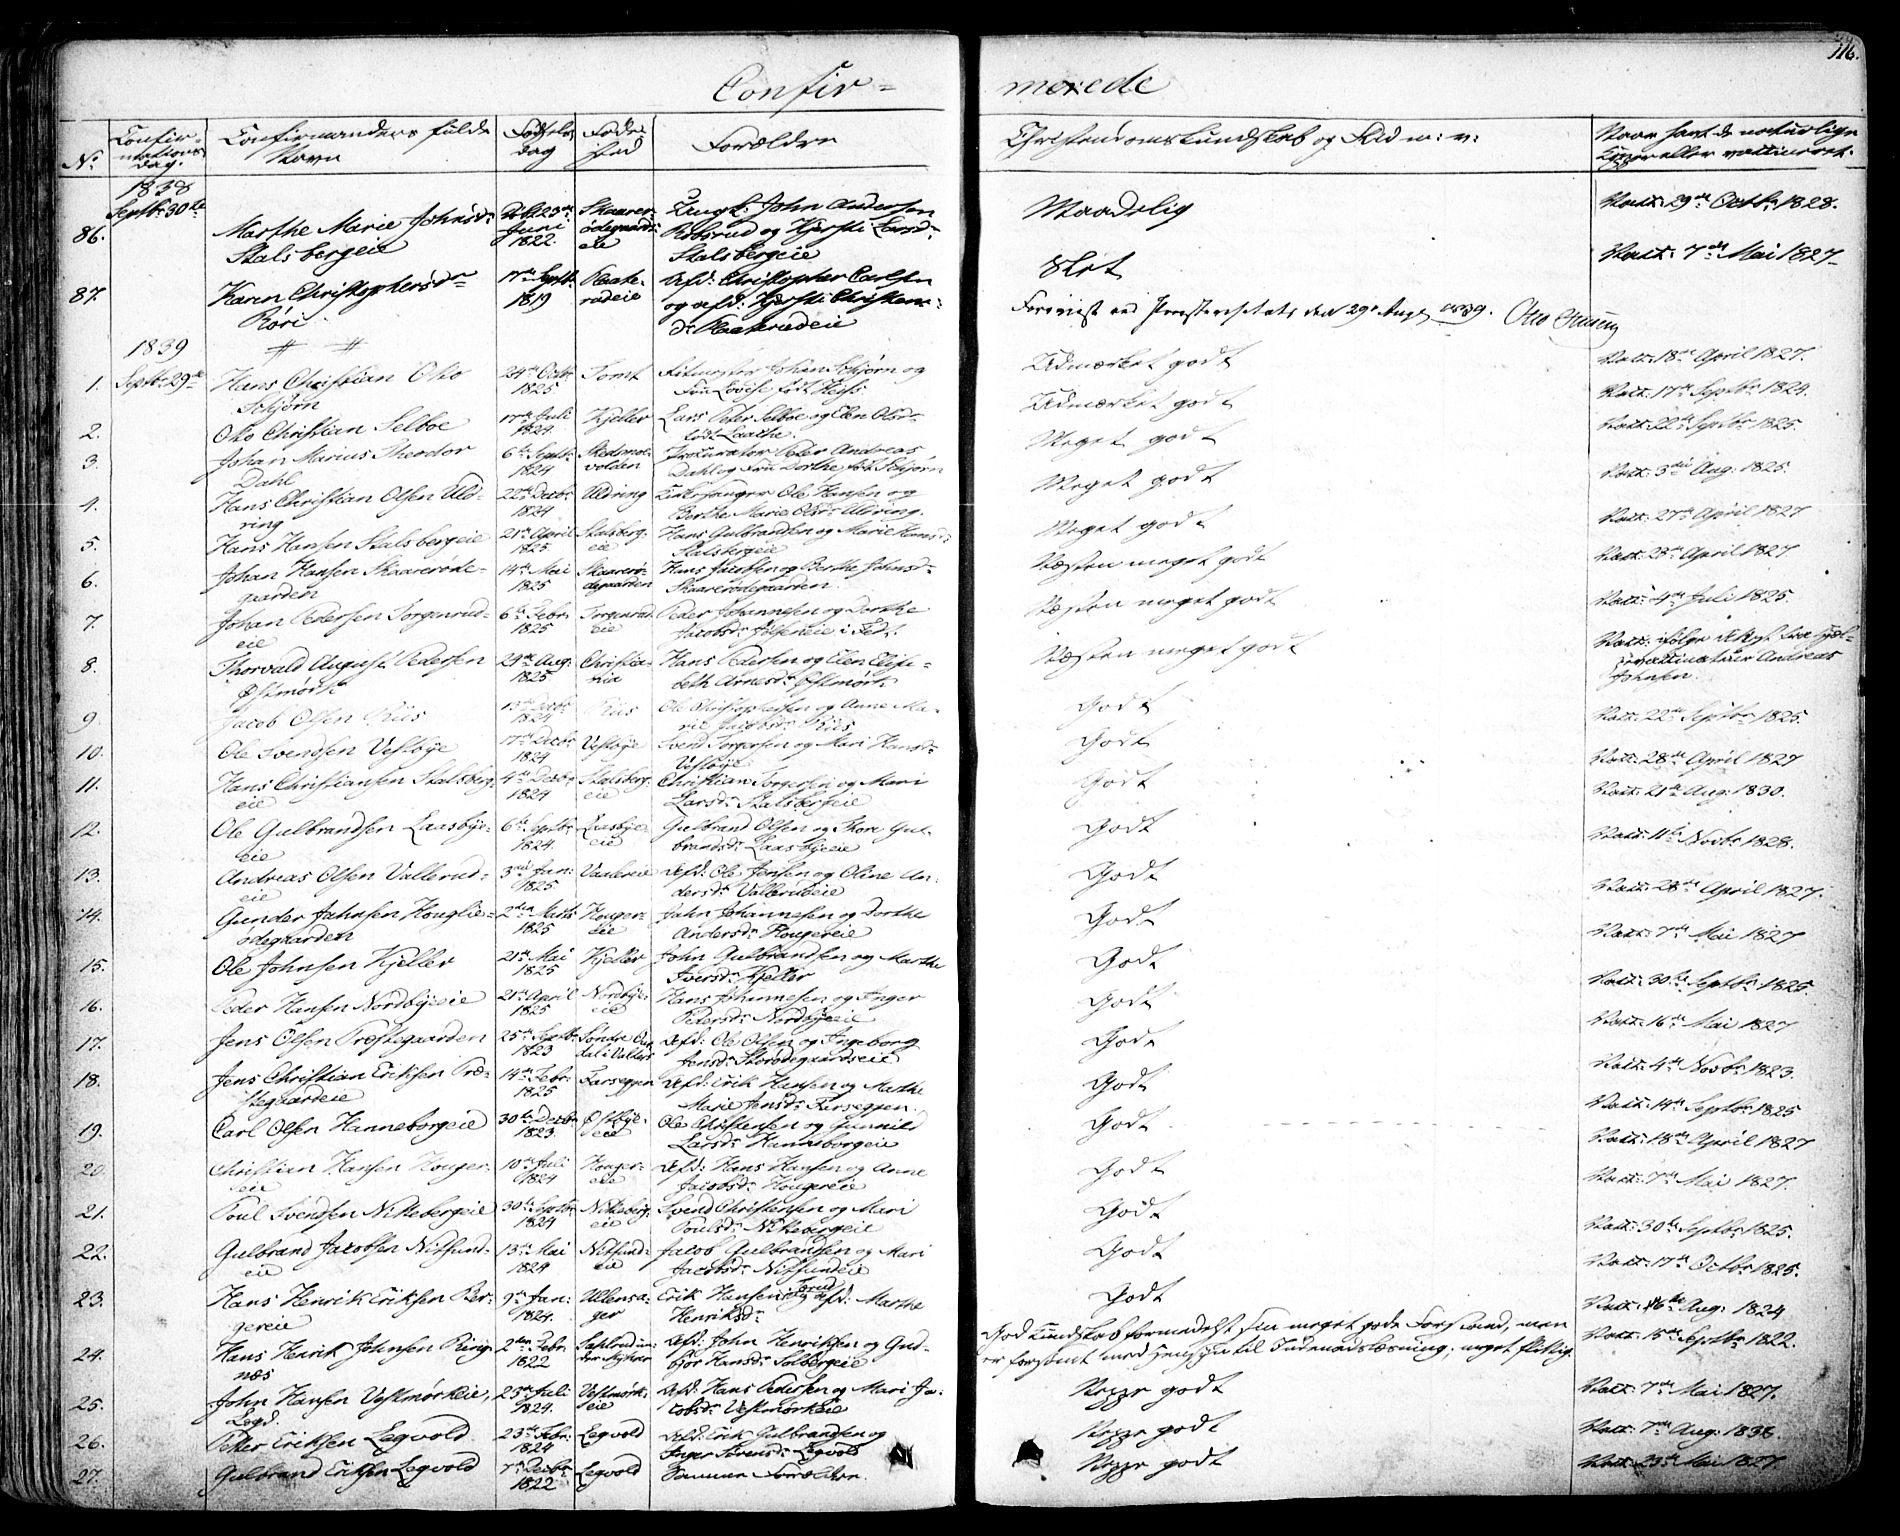 116.
Confir=
merede
No
Confir-
mations
Dag.
Confirmandens fulde
Navn
Fødsels
Dag
Føde
sted
Forældre
Christendomskundskab og Flid m: v:
Naar havt de naturlige
Kopper eller vaccineret.
1838
Septbr 30te
86. Marthe Marie Johnsdr
Stalsbergeie
23de
Juni
1822
Skaarer-
ødegaards-
eie
Ungk: John Andersen
Robsrud og Kjersti Larsdr
Stalsbergeie
Maadelig
Vact: 29de Octbr 1828.
87. Karen Christophersdr
Røri
17de Septbr
1819
Flaate-
rudeie
Afd: Christopher Carlsen
og afd: Kjersti Christens-
dr Flaaterudeie
Slet
Vact: 7de Mai 1827
Foreviist ved Provstevisitats den 29de Aug 1839. Otto
1839
Septbr 29de
1. Hans Christian Otto
Schjørn
24de Octbr
1825
Tomt
Ritmester Johan Schjørn og
Fru Lovise født Heiss
Udmærket godt
Vact: 18de April 1827.
2. Otto Christian Selboe
17de Juli
1824
Kjeller
Lars Peter Selboe og Elen Olsdr
født Laache.
Udmærket godt
Vact: 17de Septbr 1824.
3. Johan Marius Theodor
Dahl
6te Septbr
1824
Stedmos-
volden
Procurator Peter Andreas
Dahl og Fru Dorthe født Schjørn
Meget godt
Vact: 22de Septbr 1825.
4. Hans Christian Olsen Uld-
ring
22de Decbr
1824
Uldring
Kirkesanger Ole Hansen og
Berthe Marie Olsdr Uldring.
Meget godt
Vact: 3die Aug: 1825.
5. Hans Hansen Stalsbergeie
21de April
1825
Stalsberg-
eie
Hans Gulbrandsen og Marie Hansdr
Stalsbergeie
Meget godt
Vact: 27de April 1827
6. Johan Hansen Skaarerøde-
gaarden
14de Mai
1825
Skaarerø-
degaarden
Hans Jacobsen og Berthe Johnsdr
Skaarerødegaarden.
Næsten meget godt
Vact: 23de April 1827
7. Johan Pedersen Sorgenrud-
eie
6te Febr:
1825
Sorgenrud
eie
Peder Johannesen og Dorthe
Jacobsdr Jølseneie i Fedt.
Næsten meget godt
Vact: 4de Juli 1825.
8. Thorvald August Pedersen
Østmørk
29de Aug:
1825
Christia-
nia
Hans Pedersen og Elen Elisa-
beth Arnesdr Østmørk
Næsten meget godt
Vact: ifølge
vaccinateur Andreas
Johnsen.
9. Jacob Olsen Riis
13de Decbr
1824
Riis
Ole Christophersen og Anne Ma-
rie Jacobsdr Riis
Godt
Vact: 22de Septbr 1825.
10. Ole Svendsen Vestbye
17de Decbr
1824
Vestbye
Svend Torgersen og Mari Hansdr
Vestbye
Godt
Vact: 28de April 1827
11. Hans Christiansen Stalsberg-
eie
4de Decbr
1824
Stalsberg-
eie
Christian Torgersen og Mari
Larsdr Stalsbergeie
Godt
Vact: 21de Aug: 1830.
12. Ole Gulbrandsen Laasbye-
eie
6te Septbr
1824
Laasbye-
eie
Gulbrand Olsen og Thore Gul-
brandsdr Laasbyeeie
Godt
Vact: 11te Novbr 1828.
13. Andreas Olsen Vallerud-
eie
3die Jan:
1825
Vaalereie
Afd: Ole Jensen og Oline An-
dersdr Vallerudeie
Godt
Vact: 28de April 1827.
14. Gunder Jahnsen Houglie-
ødegaarden
2den Marts
1825
Houger-
eie
Jahn Johannesen og Dorthe
Andersdr Hougereie
Godt
Vact: 7de Mai 1827
15. Ole Johnsen Kjeller
21de Mai
1825
Kjeller
John Gulbrandsen og Marthe
Iversdr Kjeller
Godt
Vact: 30te Septbr 1825.
16. Peder Hansen Nordbyeeie
21de April
1825
Nordbye-
eie
Hans Johannesen og Inger
Pedersdr Nordbyeeie
Godt
Vact: 16de Mai 1827
17. Jens Olsen Præstegaarden
25de Septbr
1823
Søndre
dal i Valders
Afd: Ole Olsen og Ingeborg
Jensdr Storødegaardseie
Godt
Vact: 4de Novbr 1823.
18. Jens Christian Eriksen Præ-
stegaardeie
14de Febr:
1825
Farseggen
Afd: Erik Hansen og Marthe
Marie Jensdr Farseggen.
Godt
Vact: 14de Septbr 1825
19. Carl Olsen Hanneborgeie
30te Decbr
1823.
Østbye-
eie
Ole Christensen og Gunnild
Larsdr Hanneborgeie
Godt
Vact: 18de April 1827
20 Christian Hansen Houger-
eie
10de Juli
1824
Houger-
eie
Afd: Hans Hansen og Anne
Jacobsdr Hougereie
Godt
Vact: 7de Mai 1827.
21. Poul Svendsen Nittebergeie
30te Septbr
1824
Nitteberg-
eie
Svend Christensen og Mari
Poulsdr Nittebergeie
Godt
Vact: 30te Septbr 1825.
22. Gulbrand Jacobsen Nitsund-
eie
13de Mai
1824
Nitsund-
eie
Jacob Gulbrandsen og Mari
Jacobsdr Nitsundeie
Godt
Vact: 17de Octbr 1825.
23. Hans Henrik Eriksen Ber-
gereie
9de Jan:
1824.
Ullensa-
ger
Erik Hansen og afd: Marthe
Henriksdr
Godt
Vact: 16de Aug: 1824
24. Hans Henrik Johnsen Ring-
næs
2den Febr:
1822
Afd: John Henriksen og Gud-
bjør Hansdr Solbergeie
God Kundskab formedelst sin meget gode Forstand, men
er forsømt med Hensyn til Indenadslæsning; meget flittig.
Vact: 15de Septbr 1822.
25. John Hansen Vestmørkeie,
Lægd.
23de Juli
1824.
Vestmørk-
eie
Afd: Hans Pedersen og Mari Ja-
cobsdr Vestmørkeie
Neppe godt
Vact: 7de Mai 1827.
26. Petter Eriksen Legvold
23de Febr:
1824
Legvold
Afd: Erik Gulbrandsen og
Inger Sørensdr Legvold
Neppe godt
Vact: 7de Aug: 1836.
27. Gulbrand Eriksen Legvold
7de Decbr
1822
Legvold
Samme Forældre.
Neppe godt
Vact: 23de Mai 1827.